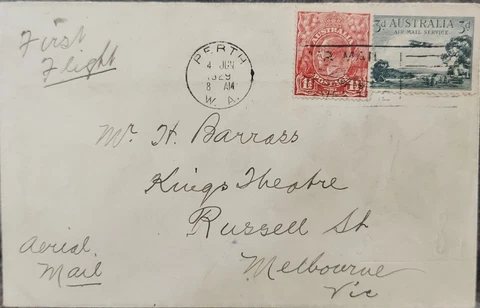 First
Flight
PERTH
4 JUN
1929
8 AM
W. A.
AUSTRALIA
POSTAGE
3d AUSTRALIA 3d
AIR MAIL SERVICE
Mr. H. Barrass
Kings Theatre
Russell St
Melbourne
Vic
Aerial
Mail